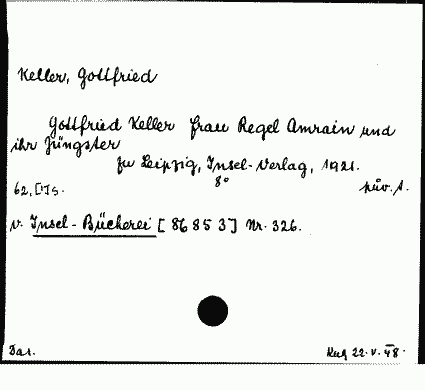 Keller, Gottfried
Gottfried Keller Frau Regel Amrain und
ihr Jüngster
zu Leipzig, Insel-Verlag, 1921.
8°
62, [1] S.
v. Insel-Bücherei [86853] Nr. 326.
22.V.48.